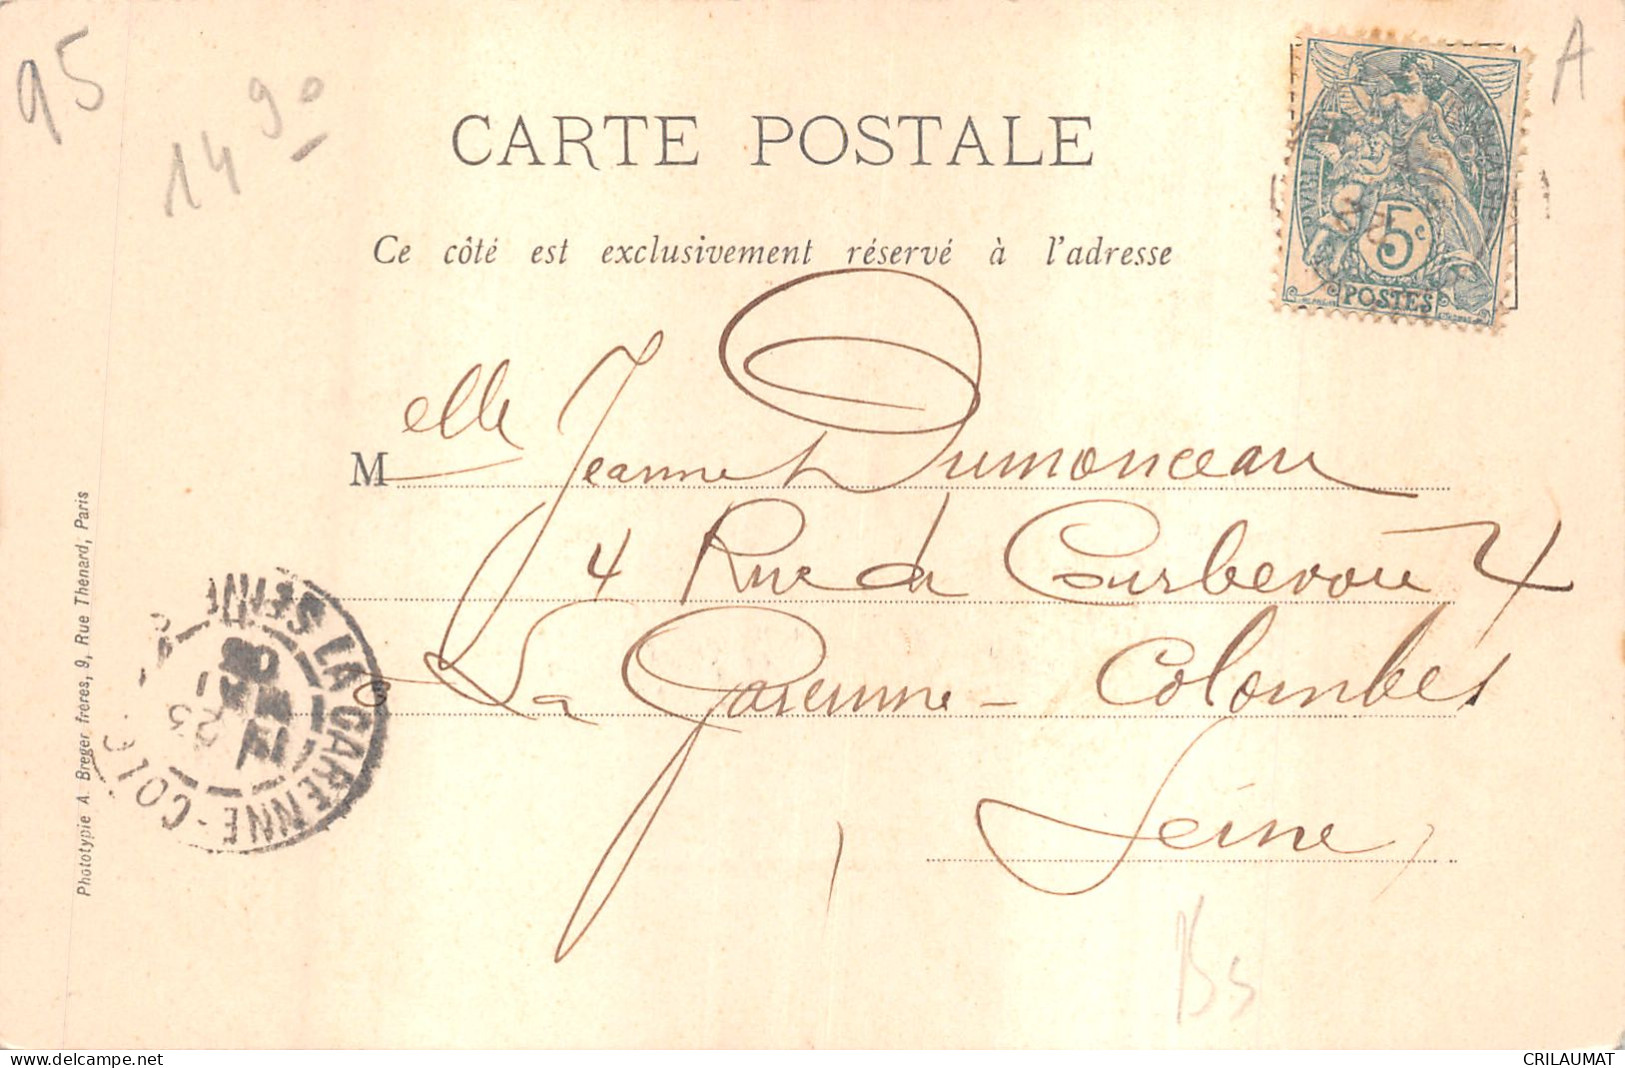 95
14 90
A
CARTE POSTALE
Ce côté est exclusivement réservé à l'adresse
5c
POSTES
Melle Jeanne Dumonceau
4 Rue de Courbevoie
La Garenne - Colombes
Seine
LA GARENNE-COL
SEINE
25
Phototypie A. Breger frères, 9, Rue Thénard, Paris
www.delcampe.net
CRILAUMAT